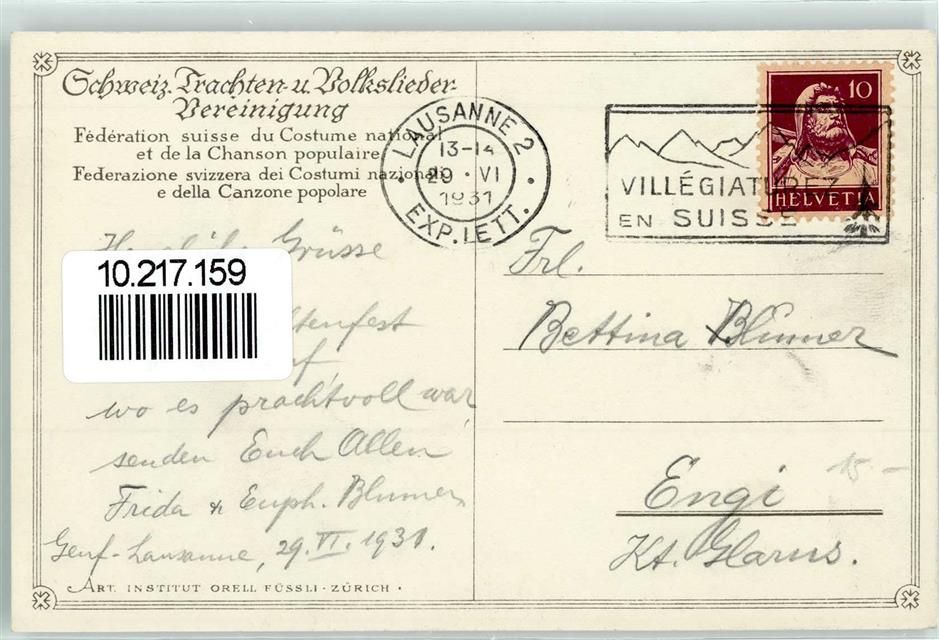 Schweiz. Trachten- u. Volkslieder-
Vereinigung
Fédération suisse du Costume national
et de la Chanson populaire
Federazione svizzera dei Costumi nazionali
e della Canzone popolare
LAUSANNE 2
13-14
29 · VI
1931
EXP. LETT.
VILLÉGIATUREZ
EN SUISSE
10
HELVETIA
Grüsse
10.217.159
wo es prachtvoll war
senden Euch Allen
Frida & Euph. Blumer
Genf-Lausanne, 29. VI. 1931.
Frl.
Bettina Blumer
Engi
Kt. Glarus.
15.-
ART. INSTITUT ORELL FÜSSLI · ZÜRICH ·